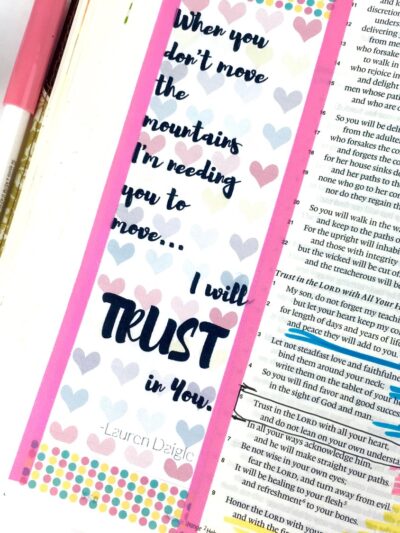 When you
don't move
the
mountains
I'm needing
you to
move...
I will
TRUST
in You.
-Lauren Daigle
discretion
unders
delivering
from me
who forsake
to walk in
who rejoice i
and delight
men whose path
and who are
So you will be deli
from the adulter
who forsakes the co
and forgets the co
for her house sinks do
and her paths to th
none who go to her co
nor do they regain th
So you will walk in the wa
and keep to the paths of
For the upright will inhabit
and those with integrity
but the wicked will be cut of
and the treacherous will be
Trust in the LORD with All Your
1 My son, do not forget my teaching
but let your heart keep my co
2 for length of days and years of life
and peace they will add to you.
3 Let not steadfast love and faithfulne
bind them around your neck;
write them on the tablet of your he
4 So you will find favor and good succes
in the sight of God and man.
5 Trust in the LORD with all your heart,
and do not lean on your own understa
6 In all your ways acknowledge him,
and he will make straight your paths.
7 Be not wise in your own eyes;
fear the LORD, and turn away from evil.
8 It will be healing to your flesh
and refreshment to your bones.
9 Honor the LORD with your
and with the firs